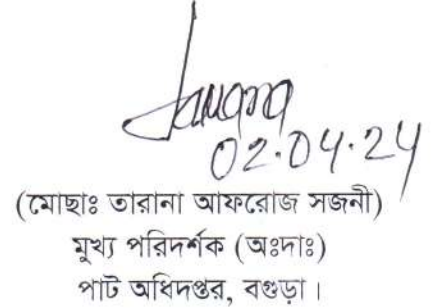 Tarana
02.04.24
(মোছাঃ তারানা আফরোজ সজনী)
মুখ্য পরিদর্শক (অঃদাঃ)
পাট অধিদপ্তর, বগুড়া।